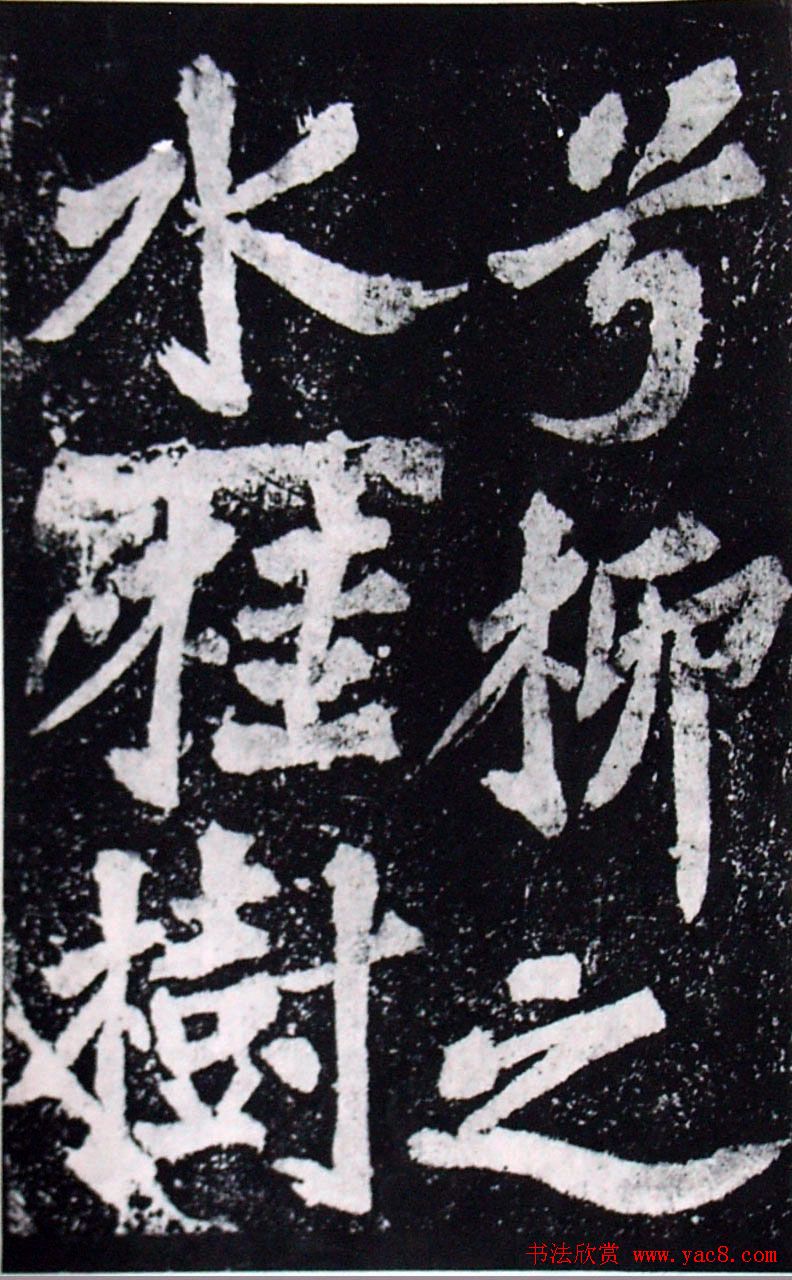 兮柳之
水桂樹
书法欣赏 www.yac8.com